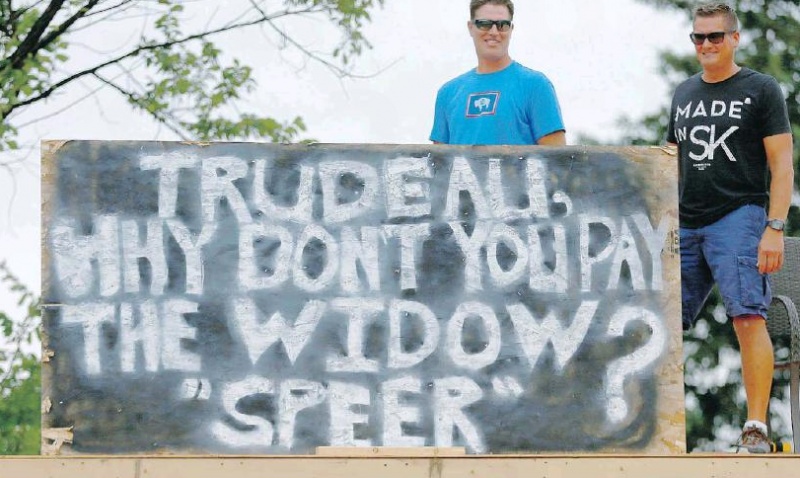 TRUDEAU,
WHY DON'T YOU PAY
THE WIDOW
"SPEER" ?
MADE
IN SK